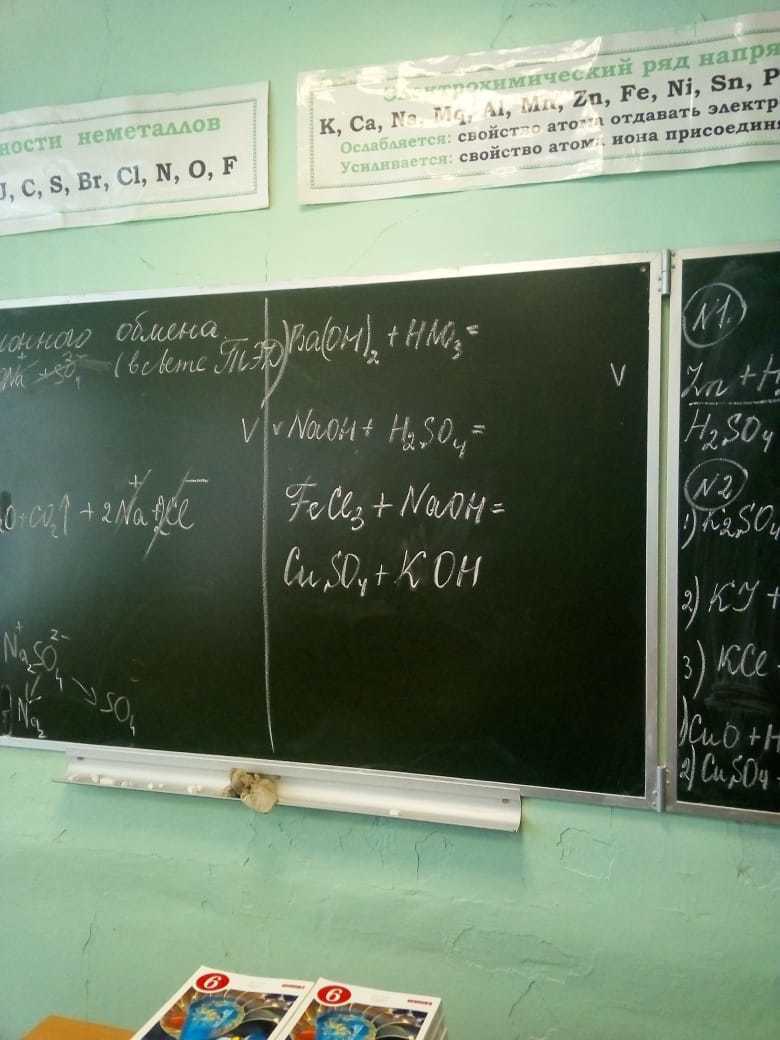 ности неметаллов
, C, S, Br, Cl, N, O, F
Электрохимический ряд напря
K, Ca, Na, Mg, Al, Mn, Zn, Fe, Ni, Sn, P
Ослабляется: свойство атома отдавать электр
Усиливается: свойство атома иона присоединя
онного обмена
Na⁺ SO₄²⁻ (в свете ТЭД)
O+CO₂↑ + 2Na⁺ + 2Cl⁻
Na₂⁺SO₄²⁻
Na₂ SO₄
) Ba(OH)₂ + HNO₃ =
V
V v NaOH + H₂SO₄ =
FeCl₃ + NaOH =
CuSO₄ + KOH
N1.
Zn + H
H₂SO₄
N2
1) K₂SO₄
2) KJ +
3) KCl
)CuO + H
2) CuSO₄
6
6